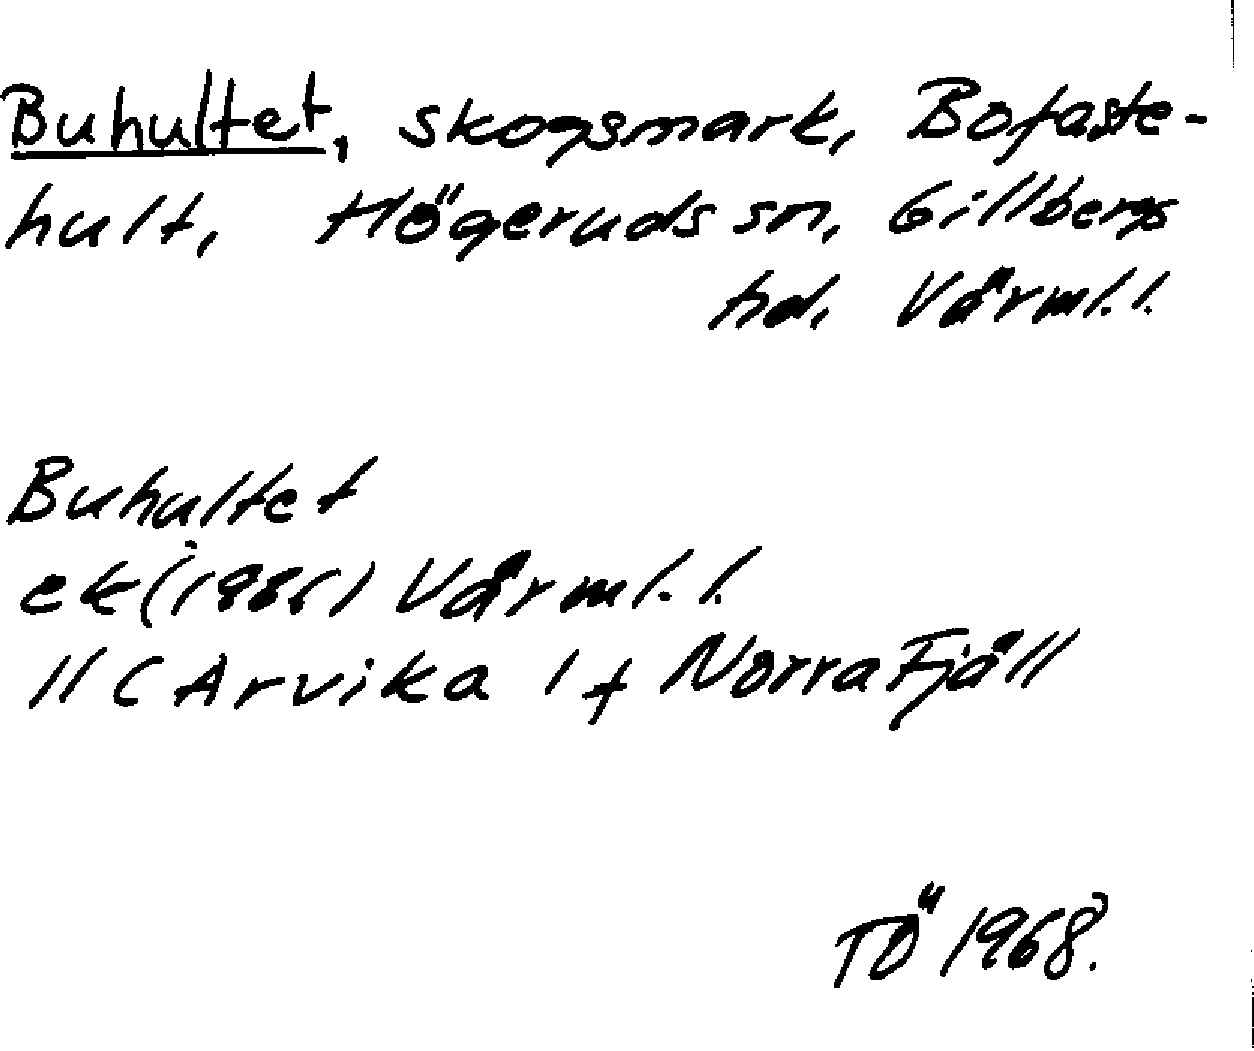 Buhultet, skogsmark, Bofaste-
hult, Högeruds sn, Gillbergs
hd, Värml. l.
Buhultet
ek (1981) Värml. l.
11 C Arvika 1 f Norra Fjäll
TÖ 1968.